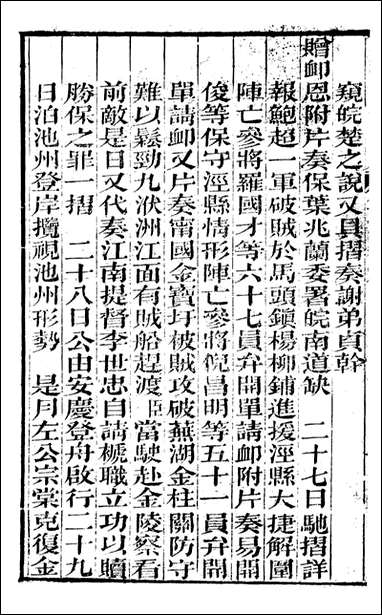 窺皖楚之說又具摺奏謝弟貞幹
贈卹恩附片奏保葉兆蘭委署皖南道缺　二十七日馳摺詳
報鮑超一軍破賊於馬頭鎮楊柳鋪進援涇縣大捷解圍
陣亡參將羅國才等六十七員弁開單請卹附片奏易開
俊等保守涇縣情形陣亡參將倪昌明等五十一員弁開
單請卹又片奏甯國金寶圩被賊攻破蕪湖金柱關防守
難以鬆勁九洑洲江面有賊船趕渡臣當駛赴金陵察看
前敵是日又代奏江南提督李世忠自請褫職立功以贖
勝保之罪一摺　二十八日公由安慶登舟啟行二十九
日泊池州登岸攬視池州形勢　是月左公宗棠克復金